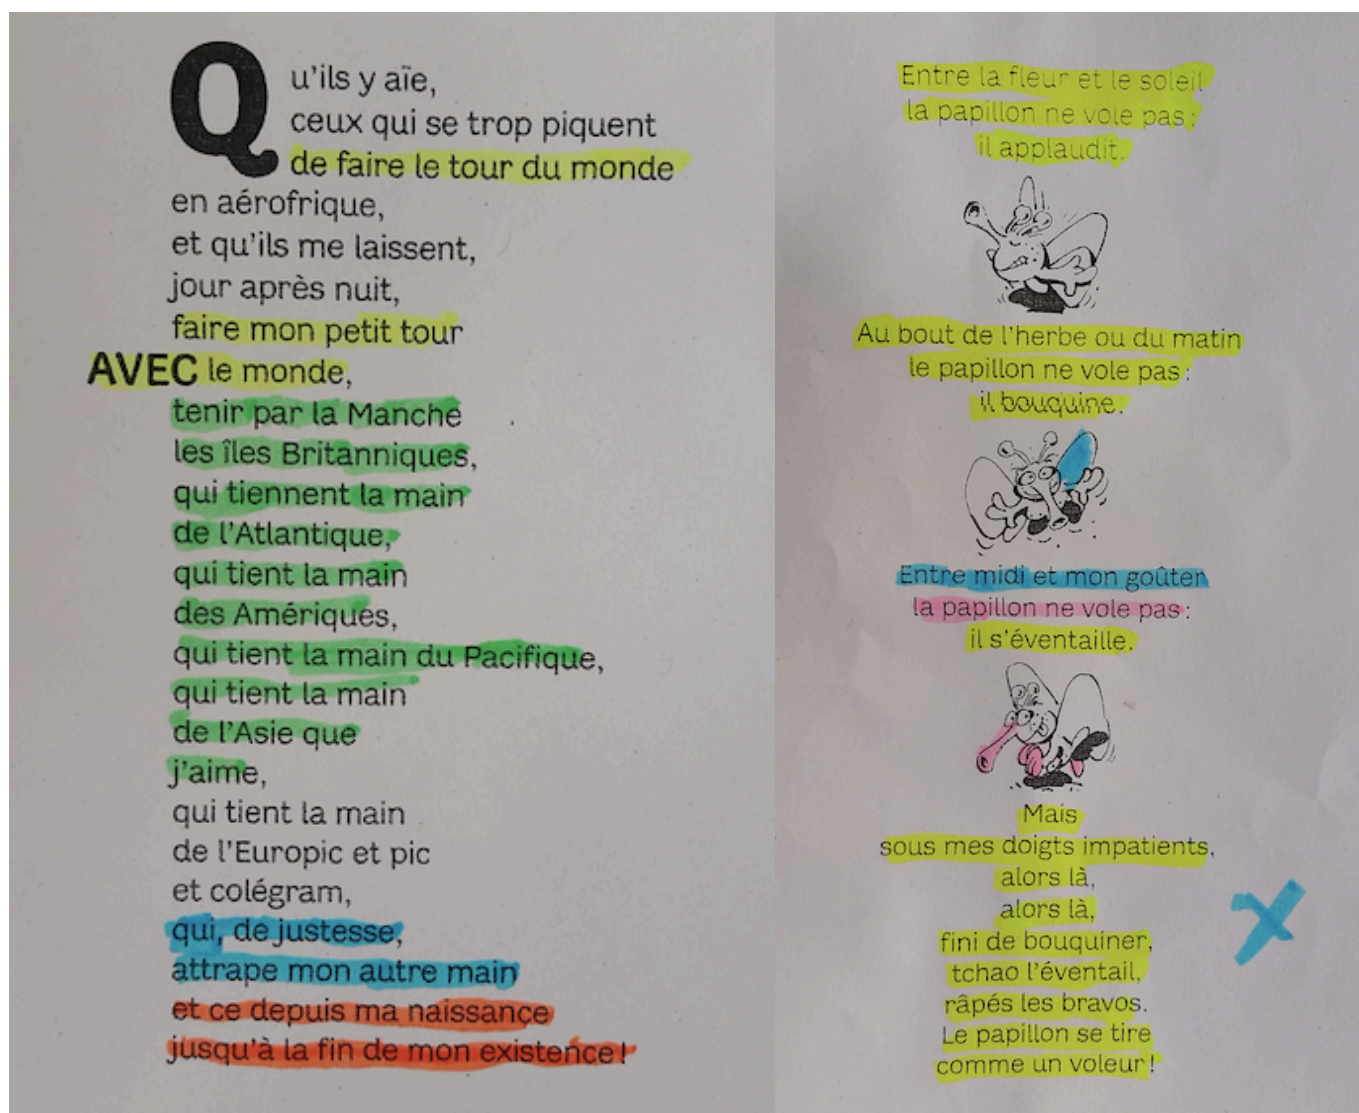 Qu'ils y aïe,
ceux qui se trop piquent
de faire le tour du monde
en aérofrique,
et qu'ils me laissent,
jour après nuit,
faire mon petit tour
AVEC le monde,
tenir par la Manche
les îles Britanniques,
qui tiennent la main
de l'Atlantique,
qui tient la main
des Amériques,
qui tient la main du Pacifique,
qui tient la main
de l'Asie que
j'aime,
qui tient la main
de l'Europic et pic
et colégram,
qui, de justesse,
attrape mon autre main
et ce depuis ma naissance
jusqu'à la fin de mon existence !
Entre la fleur et le soleil
la papillon ne vole pas :
il applaudit.
Au bout de l'herbe ou du matin
le papillon ne vole pas :
il bouquine.
Entre midi et mon goûter
la papillon ne vole pas :
il s'éventaille.
Mais
sous mes doigts impatients,
alors là,
alors là,
fini de bouquiner,
tchao l'éventail,
râpés les bravos.
Le papillon se tire
comme un voleur !